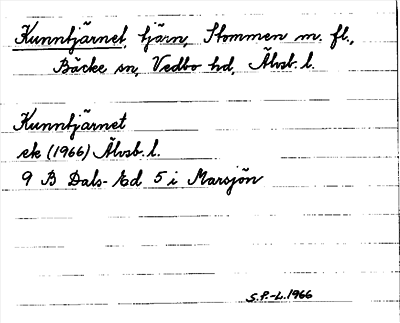 Kunntjärnet, tjärn, Stommen m. fl.,
Bäcke sn, Vedbo hd, Älvsb. l.
Kunntjärnet
ek (1966) Älvsb. l.
9 B Dals-Ed 5 i Marsjön
S.P.-L. 1966